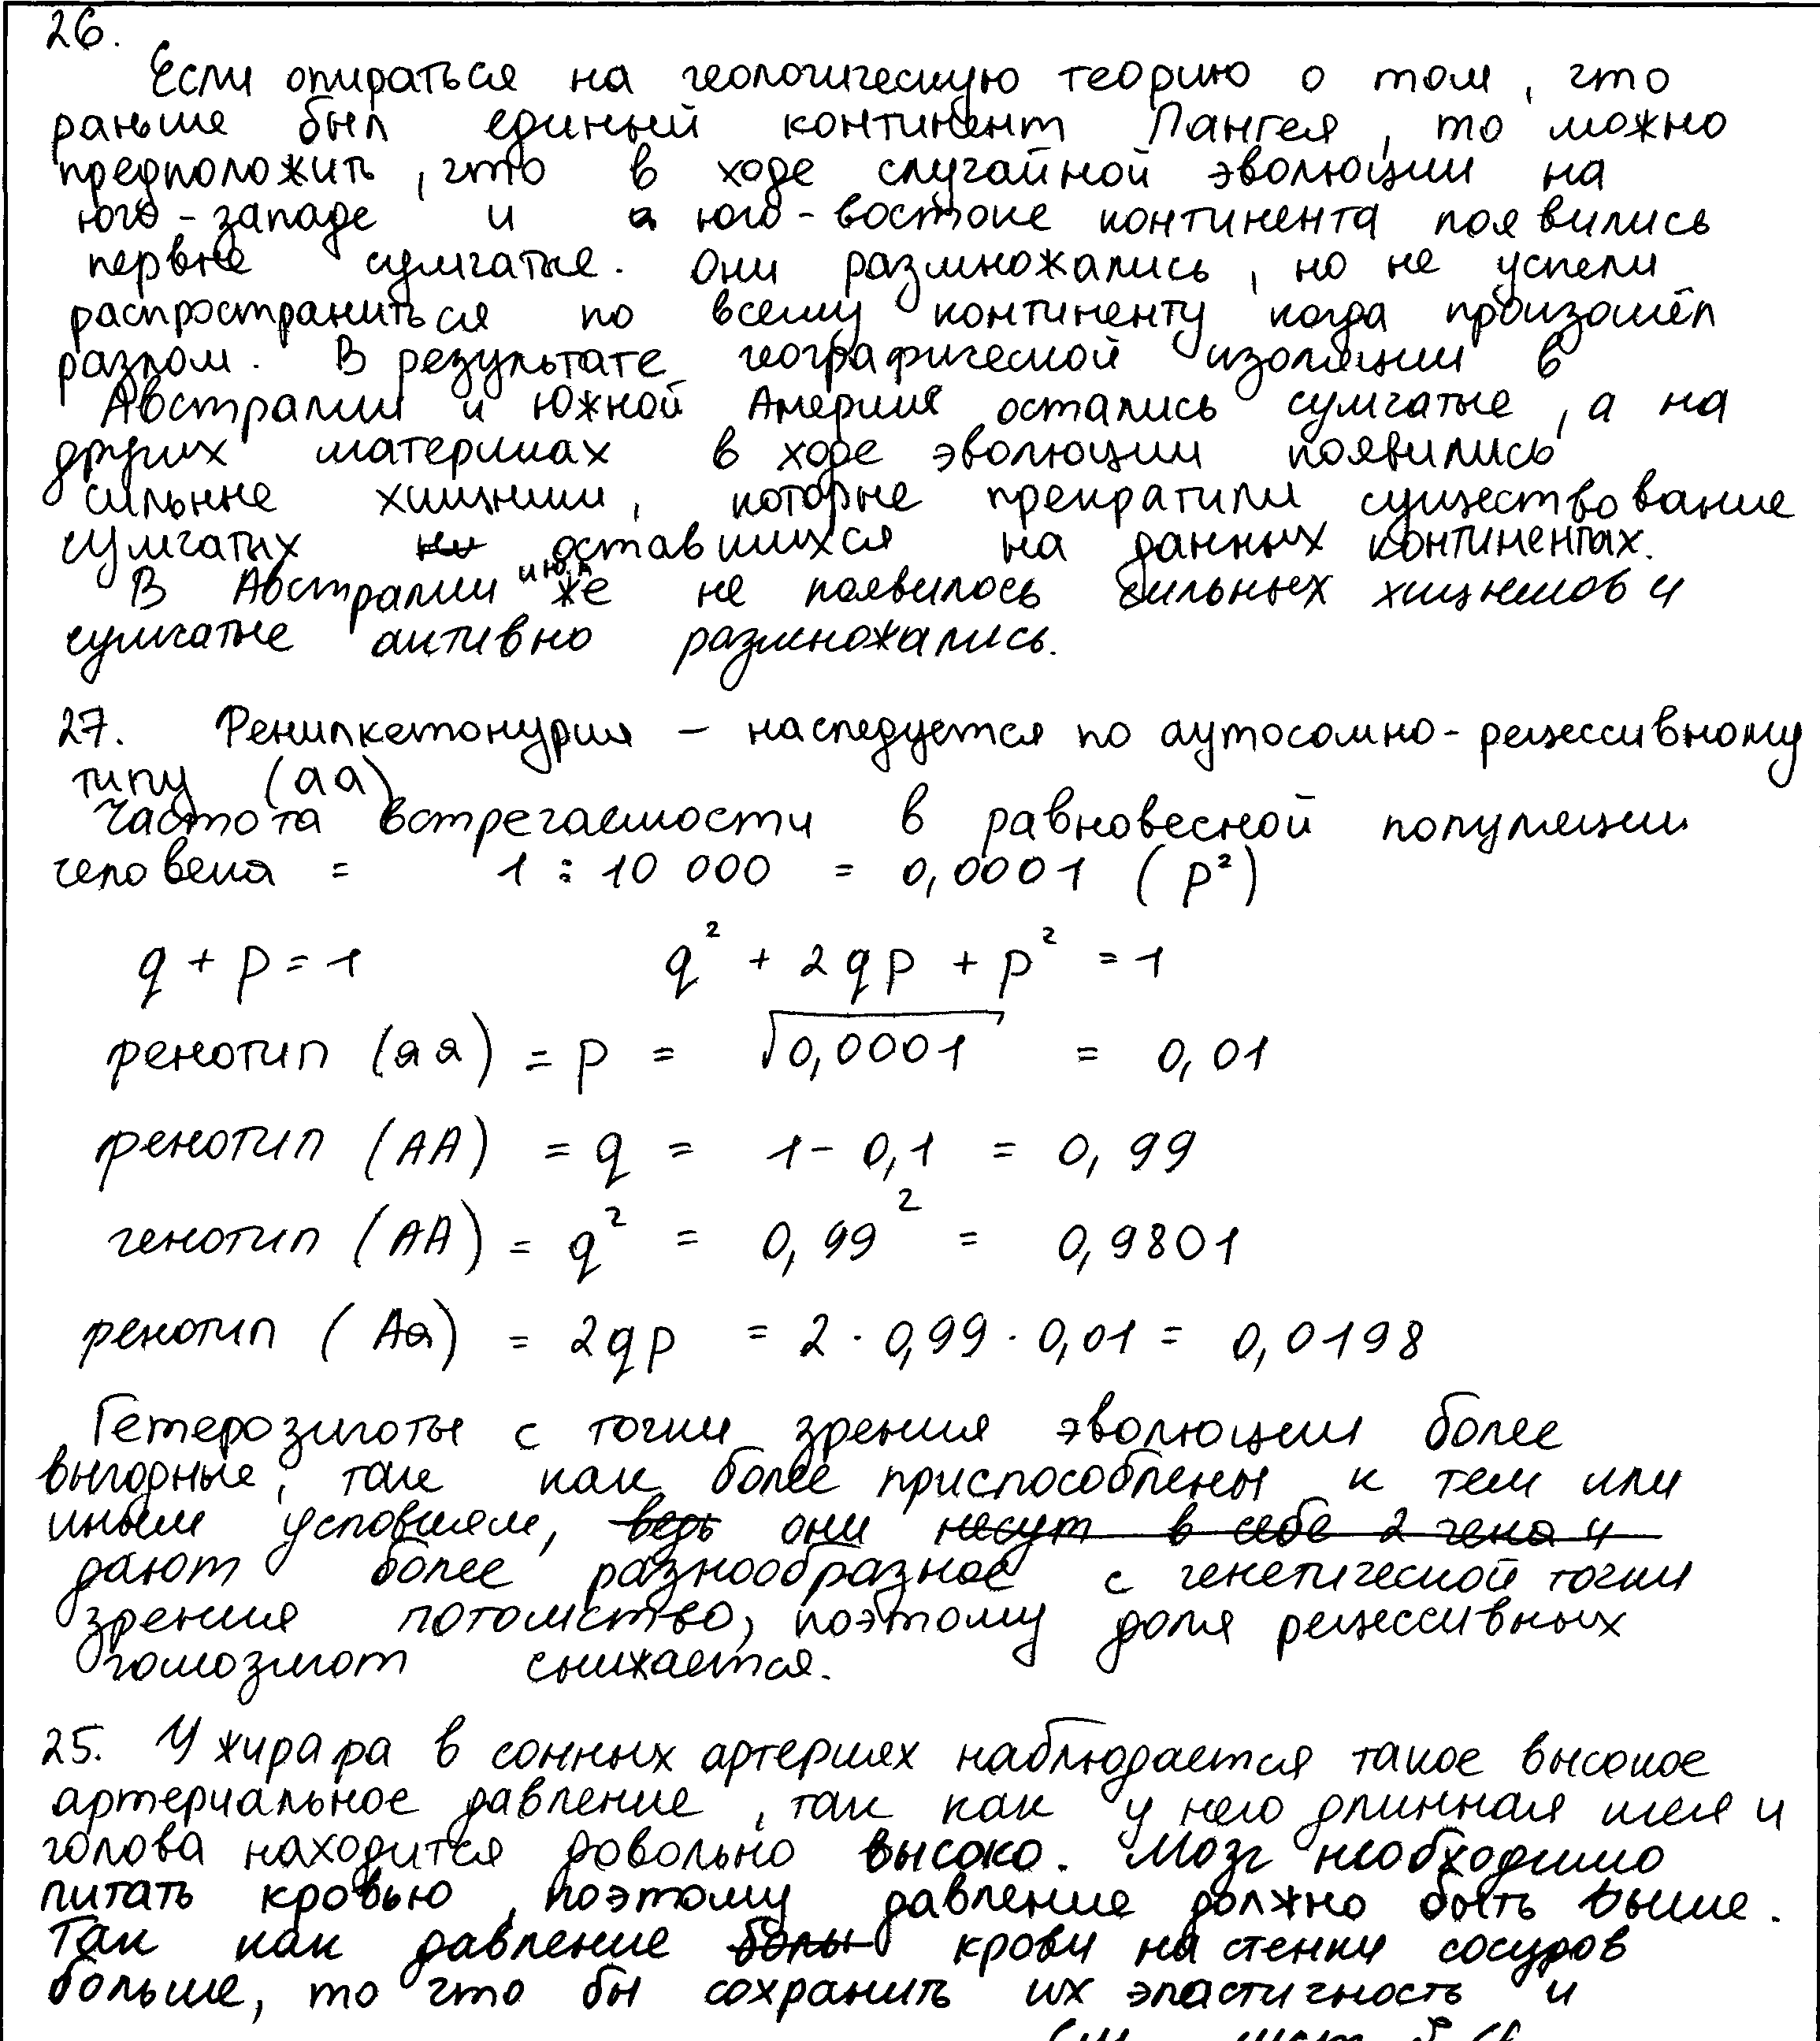 26.
Если опираться на геологическую теорию о том, что
раньше был единый континент Пангея, то можно
предположить, что в ходе случайной эволюции на
юго-западе и юго-востоке континента появились
первые сумчатые. Они размножались, но не успели
распространиться по всему континенту когда произошёл
разлом. В результате географической изоляции в
Австралии и Южной Америке остались сумчатые, а на
других материках в ходе эволюции появились
сильные хищники, которые прекратили существование
сумчатых оставшихся на данных континентах.
В Австралии же не появилось сильных хищников и
сумчатые активно размножались.
27. Фенилкетонурия – наследуется по аутосомно-рецессивному
типу (аа)
Частота встречаемости в равновесной популяции
человека = 1 : 10 000 = 0,0001 (p²)
q + p = 1 q² + 2qp + p² = 1
фенотип (аа) = p = √0,0001 = 0,01
фенотип (АА) = q = 1 - 0,1 = 0,99
генотип (АА) = q² = 0,99² = 0,9801
фенотип (Аа) = 2qp = 2 · 0,99 · 0,01 = 0,0198
Гетерозиготы с точки зрения эволюции более
выгодные, так как более приспособлены к тем или
иным условиям, ведь они несут в себе 2 гена и
дают более разнообразное с генетической точки
зрения потомство, поэтому доля рецессивных
гомозигот снижается.
25. У жирафа в сонных артериях наблюдается такое высокое
артериальное давление, так как у него длинная шея и
голова находится довольно высоко. Мозг необходимо
питать кровью, поэтому давление должно быть выше.
Так как давление крови на стенки сосудов
больше, то что бы сохранить их эластичность и